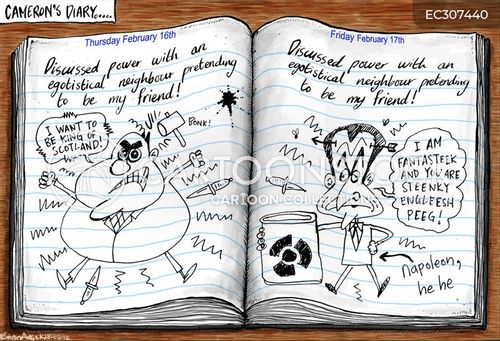 CAMERON'S DIARY.....
EC307440
Thursday February 16th
Discussed power with an
egotistical neighbour pretending
to be my friend!
I WANT TO
BE KING OF
SCOTLAND!
BONK!
Friday February 17th
Discussed power with an
egotistical neighbour pretending
to be my friend!
I AM
FANTASTEEK
AND YOU ARE
STEENKY
ENGLEESH
PEEG!
Napoleon,
he he
CARTOON COLLECTIONS